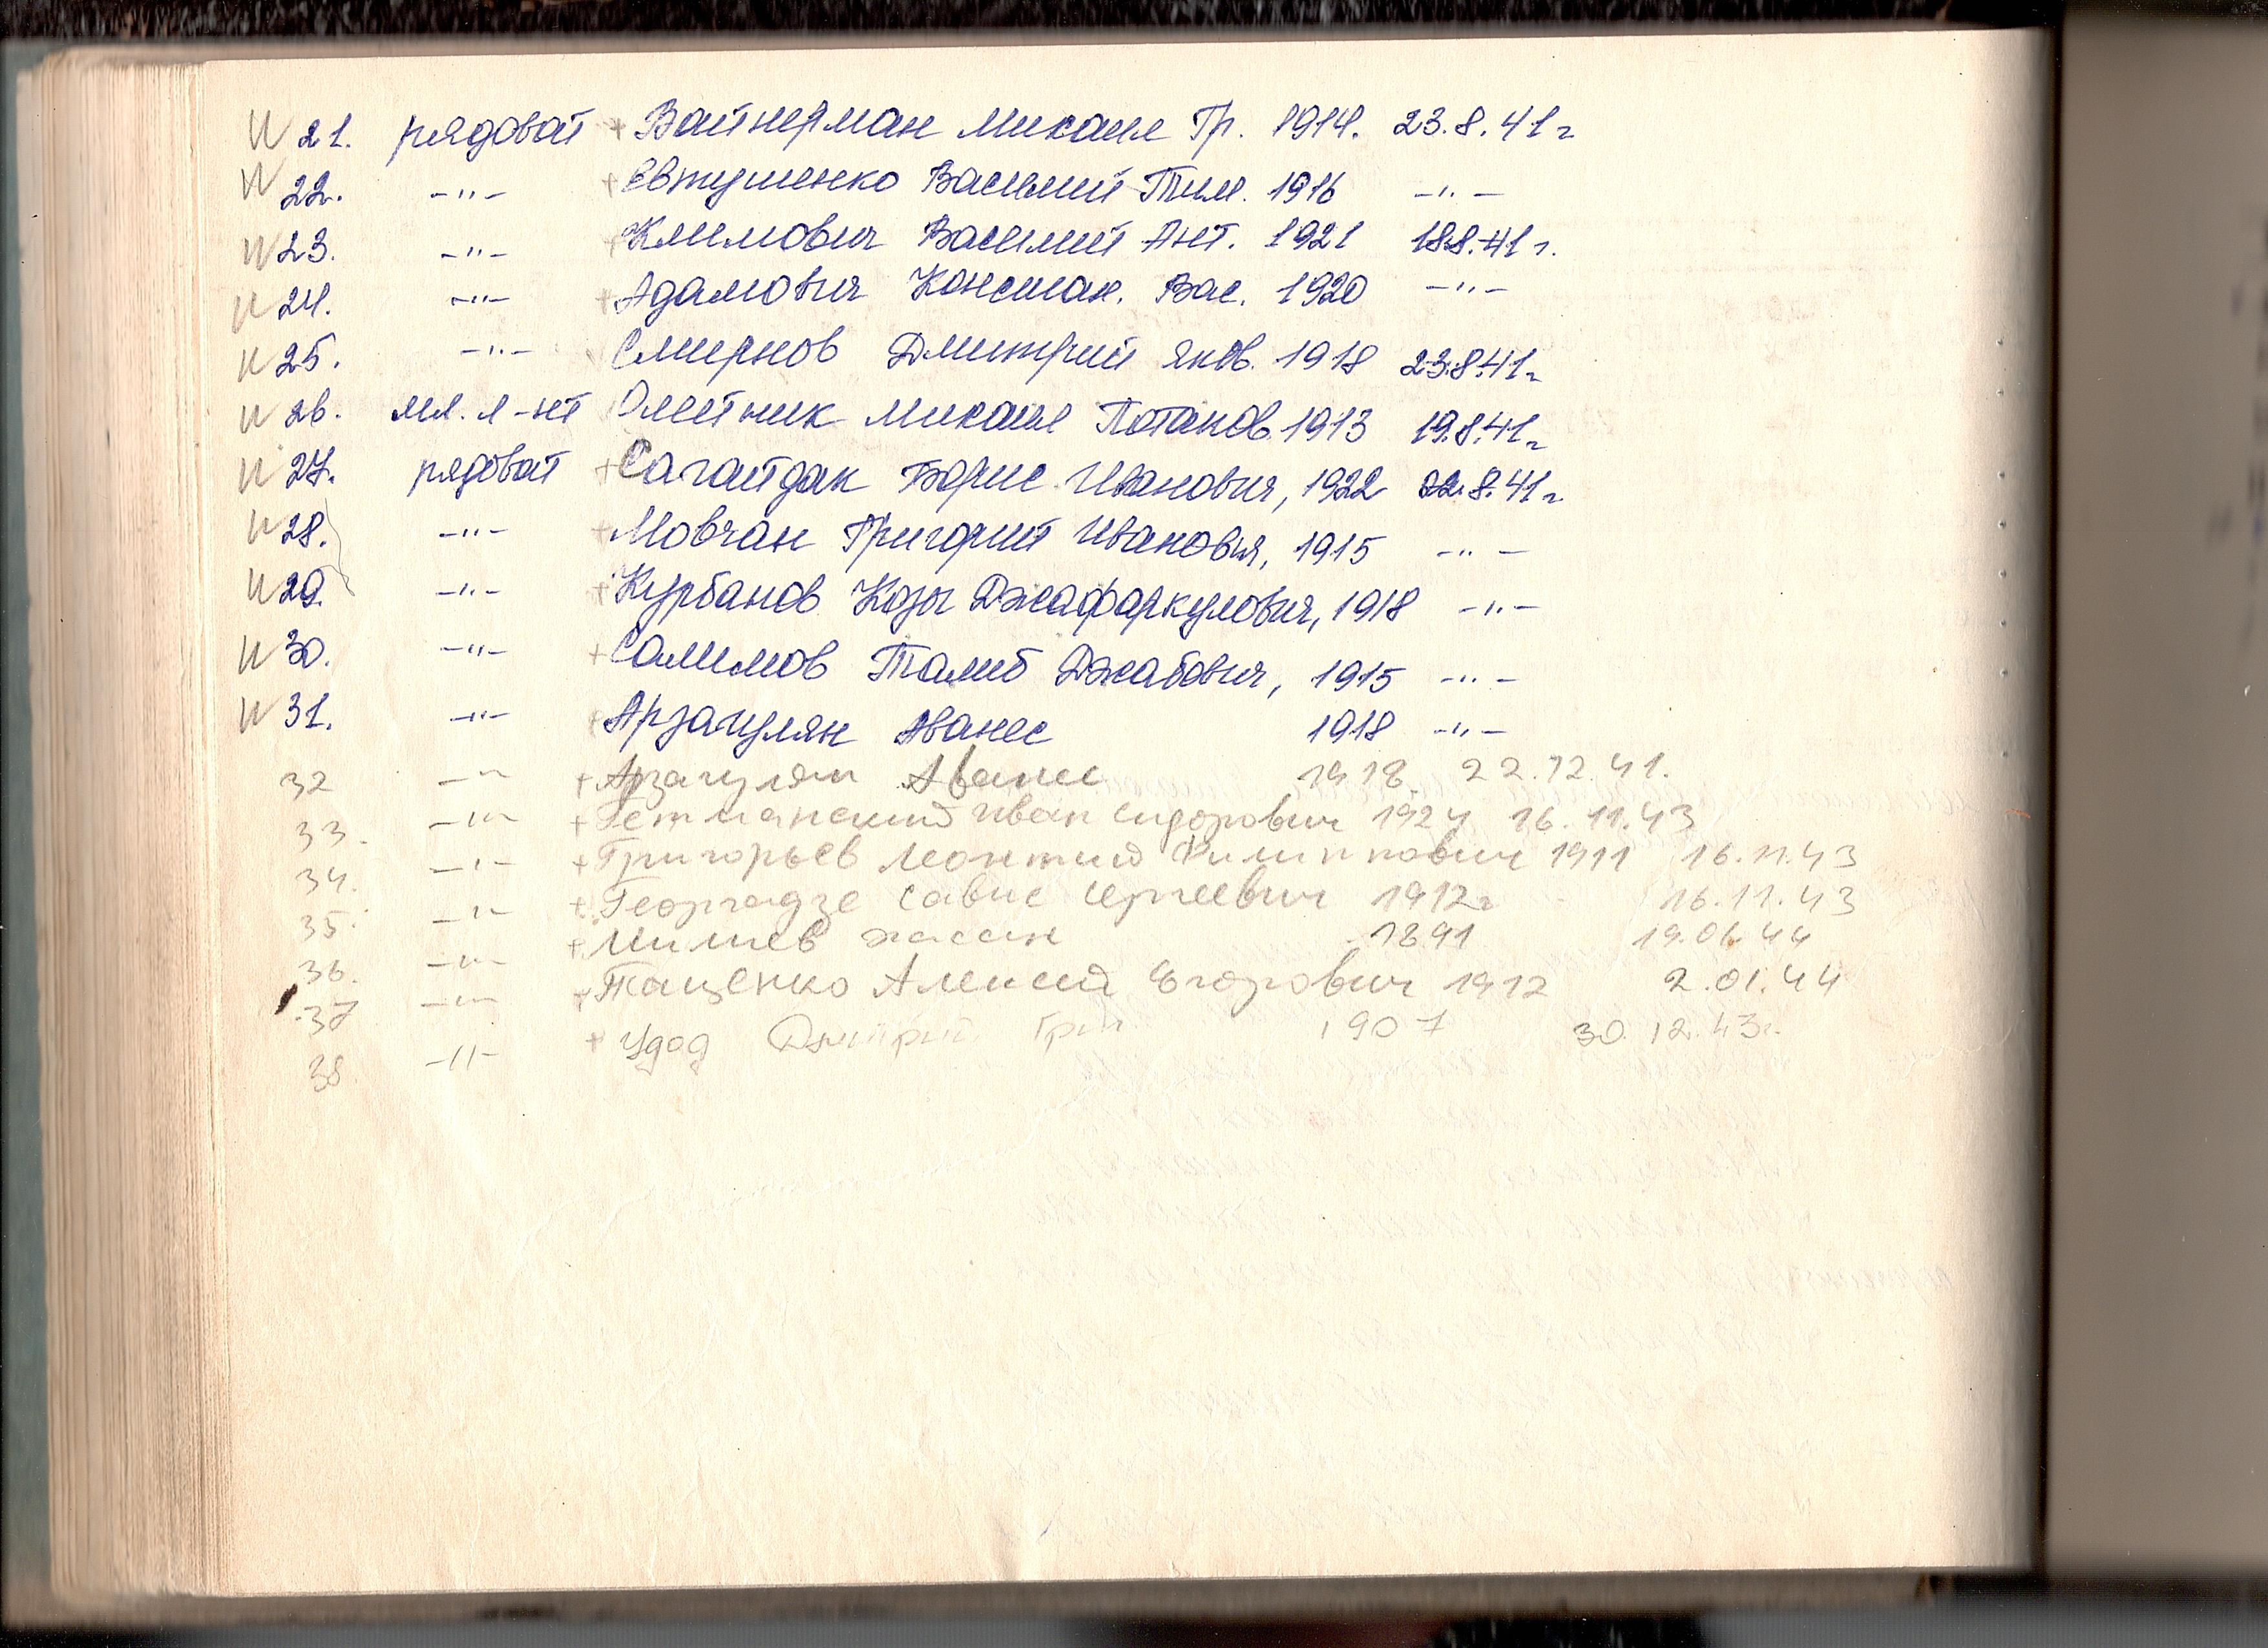 21. рядовой + Вайнерман Михаил Гр. 1914. 23.8.41г
22. -"- + Евтушенко Василий Тим. 1916 -"-
23. -"- + Климович Василий Ант. 1921 18.8.41г.
24. -"- + Адамович Констан. Вас. 1920 -"-
25. -"- Смирнов Дмитрий Яков. 1918 23.8.41г
26. мл. л-нт Олейник Михаил Потапов. 1913 19.8.41г
27. рядовой + Сагайдак Борис Иванович, 1922 22.8.41г
28. -"- + Мовчан Григорий Иванович, 1915 -"-
29. -"- + Курбанов Козы Джафаркулович, 1918 -"-
30. -"- + Салимов Талиб Джабович, 1915 -"-
31. -"- + Арзагулян Аванес 1918 -"-
32 -"- + Арзагулян Аванес 1918. 22.12.41.
33. -"- + Гетманский Иван Сидорович 1924 16.11.43
34. -"- + Григорьев Леонтий Филиппович 1911 16.11.43
35. -"- + Георгадзе Савле Сергеевич 1912г 16.11.43
36. -"- + 1891
37 -"- + Тащенко Алексей Егорович 1912 2.01.44
38 -"- + Удод Дмитрий Григ. 1907 30.12.43г.